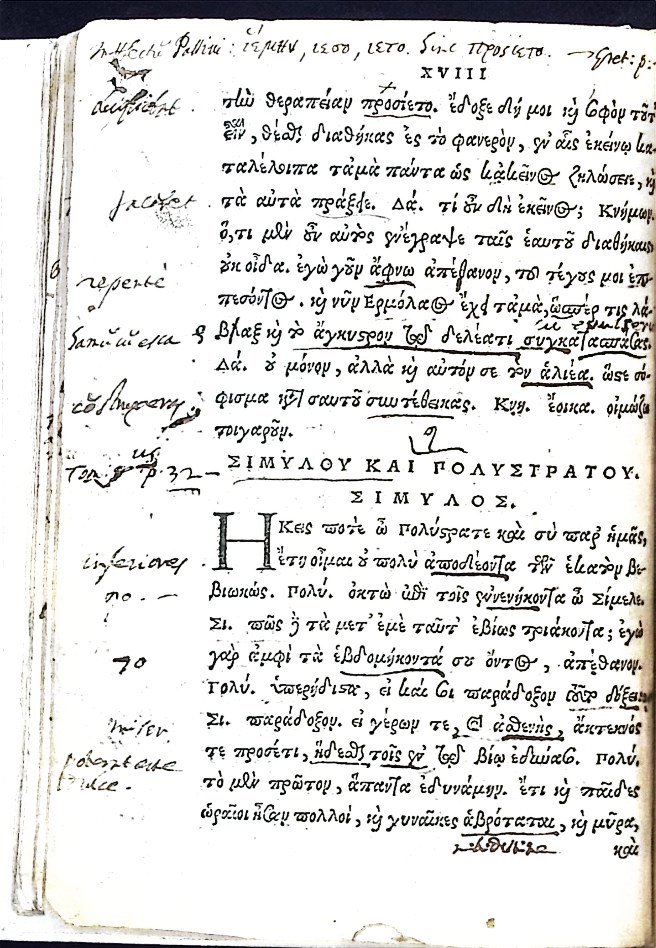 ἵεμην, ιεσο, ιετο. Sine προσιετο.
XVIII
τὴν θεραπείαν προσίετο. ἔδοξε δή μοι καὶ σοφὸν τοῦτ
εἶν, θέσθαι διαθήκας ἐς τὸ φανερὸν, ἐν αἷς ἐκείνῳ κα-
ταλέλοιπα τἀμὰ πάντα ὡς κἀκεῖνος ζηλώσειε, καὶ
τὰ αὐτὰ πράξειε. Δά. τί οὖν δὴ ἐκεῖνος; Κνήμων.
ὅ,τι μὲν οὖν αὐτὸς ἐνέγραψε ταῖς ἑαυτοῦ διαθήκαις
οὐκ οἶδα. ἐγὼ γοῦν ἄφνω ἀπέθανον, τοῦ τέγους μοι ἐπι-
repente
πεσόντος. καὶ νῦν Ερμόλαος ἔχει τἀμὰ, ὥσπερ τις λά-
βραξ καὶ τὸ ἄγκιστρον τῷ δελέατι συγκατασπάσας.
Δά. οὐ μόνον, ἀλλὰ καὶ αὐτόν σε τὸν ἁλιέα. ὥστε σό-
φισμα κατὰ σαυτοῦ συντέθεικας. Κνη. ἔοικα. οἰμώζω
τοιγαροῦν.
ΣΙΜΥΛΟΥ ΚΑΙ ΠΟΛΥΣΤΡΑΤΟΥ.
ΣΙΜΥΛΟΣ.
ΗΚεις ποτὲ ὦ Πολύστρατε καὶ σὺ παρ' ἡμᾶς,
ἔτη οἶμαι οὐ πολὺ ἀποδέοντα τῶν ἑκατὸν βε-
βιωκώς. Πολύ. ὀκτὼ ἐπὶ τοῖς ἐνενήκοντα ὦ Σίμυλε.
Σι. πῶς δὲ τὰ μετ' ἐμὲ ταῦτ' ἐβίως τριάκοντα; ἐγὼ
γὰρ ἀμφὶ τὰ ἑβδομήκοντά σου ὄντος, ἀπέθανον.
70
Πολύ. ὑπερήδιστα, εἰ καί σοι παράδοξον τοῦτο δόξει.
Σι. παράδοξον. εἰ γέρων τε, καὶ ἀσθενὴς, ἄτεκνός
τε προσέτι, ἥδεσθαι τοῖς ἐν τῷ βίῳ ἐδύνασο. Πολύ.
τὸ μὲν πρῶτον, ἅπαντα ἐδυνάμην. ἔτι καὶ παῖδες
ὡραῖοι ἦσαν πολλοὶ, καὶ γυναῖκες ἁβρόταται, καὶ μῦρα,
καὶ